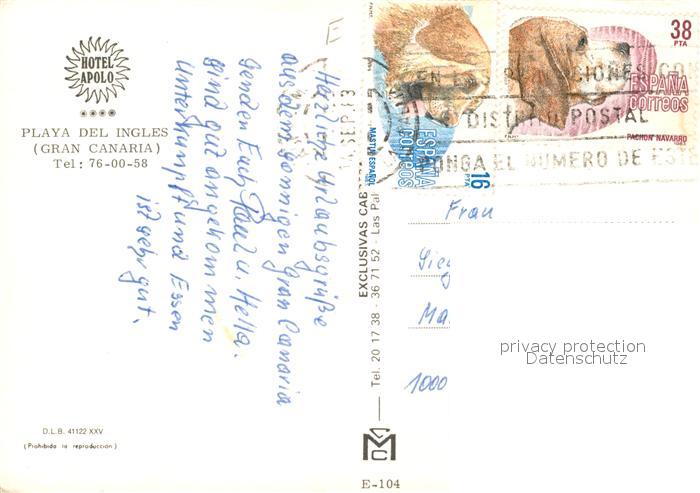 HOTEL
APOLO
PLAYA DEL INGLES
(GRAN CANARIA)
Tel: 76-00-58
Herzliche Urlaubsgrüße
aus dem sonnigen Gran Canaria
senden Euch Paul u. Hella.
Sind gut angekommen
Unterkunft und Essen
ist sehr gut.
D.L.B. 41122 XXV
(Prohibida la reproducción)
EXCLUSIVAS
Tel. 20 17 38 - 36 71 52 - Las Pal
E-104
MASTIN ESPAÑOL
ESPAÑA
CORREOS
16
PTA
38
PTA
ESPAÑA
correos
PACHON NAVARRO
SEP
EN LAS
DISTRITO POSTAL
PONGA EL NUMERO DE ESTE
Frau
Sieg
Ma
1000
privacy protection
Datenschutz